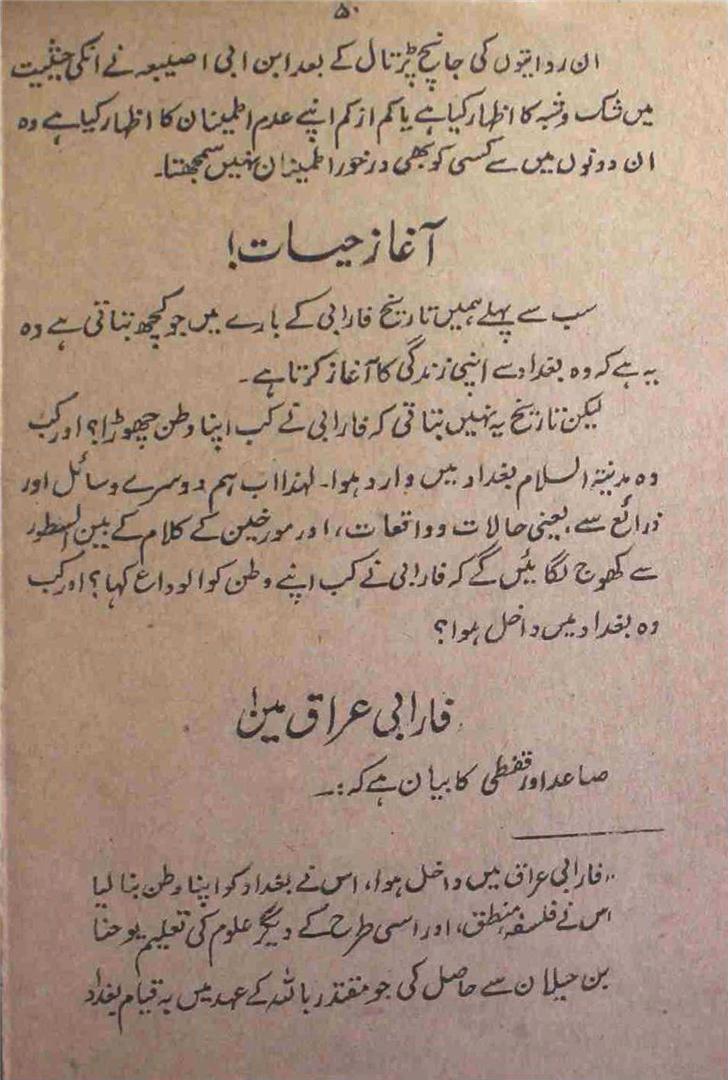 ۵۰
ان روایتوں کی جانچ پڑتال کے بعد ابن ابی اصیبعہ نے انکی حیثیت
میں شک و شبہ کا اظہار کیا ہے یا کم از کم اپنے عدم اطمینان کا اظہار کیا ہے وہ
ان دونوں میں سے کسی کو بھی درخور اطمینان نہیں سمجھتا۔
آغاز حیات!
سب سے پہلے ہمیں تاریخ فارابی کے بارے میں جو کچھ بتاتی ہے وہ
یہ ہے کہ وہ بغداد سے اپنی زندگی کا آغاز کرتا ہے۔
لیکن تاریخ یہ نہیں بتاتی کہ فارابی نے کب اپنا وطن چھوڑا؟ اور کب
وہ مدینۃ السلام بغداد میں وارد ہوا۔ لہذا اب ہم دوسرے وسائل اور
ذرائع سے، یعنی حالات و واقعات، اور مورخین کے کلام کے بین السطور
سے کھوج لگائیں گے کہ فارابی نے کب اپنے وطن کو الوداع کہا؟ اور کب
وہ بغداد میں داخل ہوا؟
فارابی عراق مین!
صاعد اور قفطی کا بیان ہے کہ:۔
"فارابی عراق میں داخل ہوا، اس نے بغداد کو اپنا وطن بنا لیا
اس نے فلسفہ، منطق، اور اسی طرح کے دیگر علوم کی تعلیم یوحنا
بن حیلان سے حاصل کی جو مقتدر باللہ کے عہد میں بہ قیام بغداد